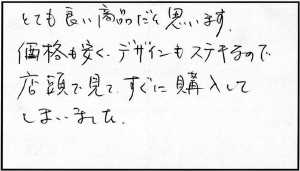 とても良い商品だと思います。
価格も安く、デザインもステキなので
店頭で見て、すぐに購入して
しまいました。